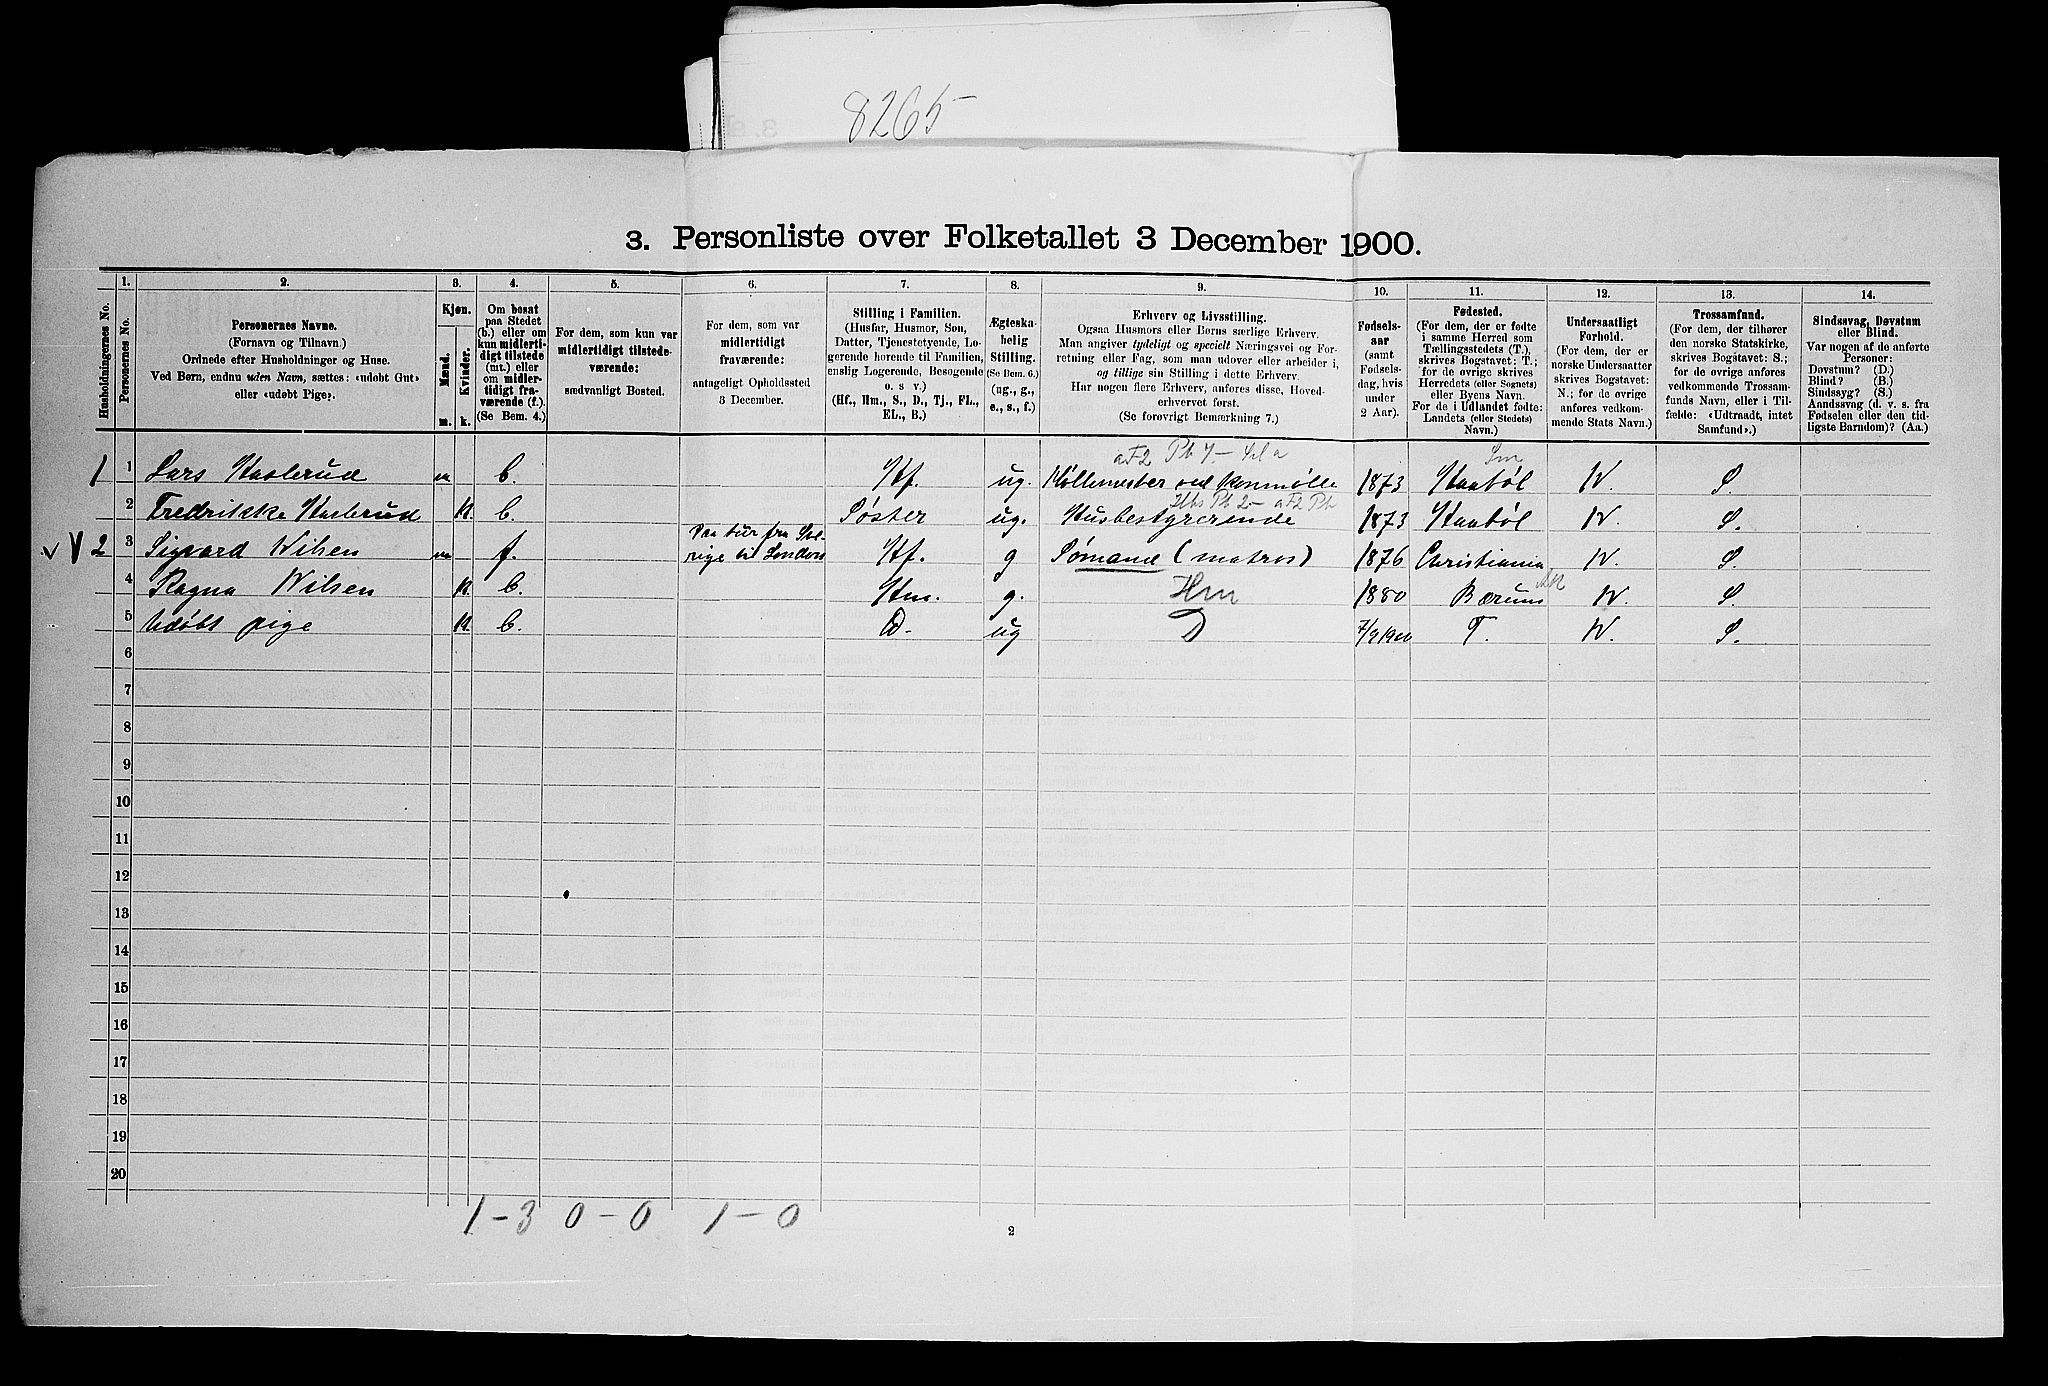 8265
3. Personliste over Folketallet 3 December 1900.
Husholdningernes No.
1.
Personernes No.
2.
Personernes Navne.
(Fornavn og Tilnavn.)
Ordnede efter Husholdninger og Huse.
Ved Børn, endnu uden Navn, sættes: «udøbt Gut»
eller «udøbt Pige».
3.
Kjøn.
Mænd.
Kvinder.
m.
k.
4.
Om bosat
paa Stedet
(b.) eller om
kun midlerti-
digt tilstede
(mt.) eller
om midler-
tidigt fra-
værende (f.).
(Se Bem. 4.)
5.
For dem, som kun var
midlertidigt tilstede-
værende:
sædvanligt Bosted.
6.
For dem, som var
midlertidigt
fraværende:
antageligt Opholdssted
3 December.
7.
Stilling i Familien.
(Husfar, Husmor, Søn,
Datter, Tjenestetyende, Lo-
gerende hørende til Familien,
enslig Logerende, Besøgende
o. s. v.)
(Hf., Hm., S., D., Tj., FL.,
EL., B.)
8.
Ægteska-
belig
Stilling.
(Se Bem. 6.)
(ug., g.,
e., s., f.)
9.
Erhverv og Livsstilling.
Ogsaa Husmors eller Børns særlige Erhverv.
Man angiver tydeligt og specielt Næringsvei og For-
retning eller Fag, som man udøver eller arbeider i,
og tillige sin Stilling i dette Erhverv.
Har nogen flere Erhverv, anføres disse, Hoved-
erhvervet først.
(Se forøvrigt Bemærkning 7.)
10.
Fødsels-
aar
(samt
Fødsels-
dag, hvis
under
2 Aar).
11.
Fødested.
(For dem, der er fødte
i samme Herred som
Tællingsstedets (T.),
skrives Bogstavet: T.;
for de øvrige skrives
Herredets (eller Sognets)
eller Byens Navn.
For de i Udlandet fødte:
Landets (eller Stedets)
Navn.)
12.
Undersaatligt
Forhold.
(For dem, der er
norske Undersaatter
skrives Bogstavet:
N.; for de øvrige
anføres vedkom-
mende Stats Navn.)
13.
Trossamfund.
(For dem, der tilhører
den norske Statskirke,
skrives Bogstavet: S.;
for de øvrige anføres
vedkommende Trossam-
funds Navn, eller i Til-
fælde: «Udtraadt, intet
Samfund».)
14.
Sindssvag, Døvstum
eller Blind.
Var nogen af de anførte
Personer:
Døvstum? (D.)
Blind? (B.)
Sindssyg? (S.)
Aandssvag (d. v. s. fra
Fødselen eller den tid-
ligste Barndom)? (Aa.)
aF2 Pb 7.-
1 1 Lars Haslerud m b. Hf. ug. Møllemester ved Kornmølle 1873 Haabøl N. S.
Hbs Pb 2- aF2 Pb
2 Fredrikke Haslerud k b. Søster ug. Husbestyrerinde 1873 Haabøl N. S.
v V 2 3 Sigvard Nilsen m f. Paa tur fra Sve-
rige til London Hf. g Sømand (matros) 1876 Christiania N. S.
4 Ragna Nilsen k. b. Hm. g. Hm 1880 Bærum N. S.
5 Udøbt pige k. b. D. ug D 7/9 1900 T. N. S.
6
7
8
9
10
11
12
13
14
15
16
17
18
19
20
1-3 0-0 1-0
2